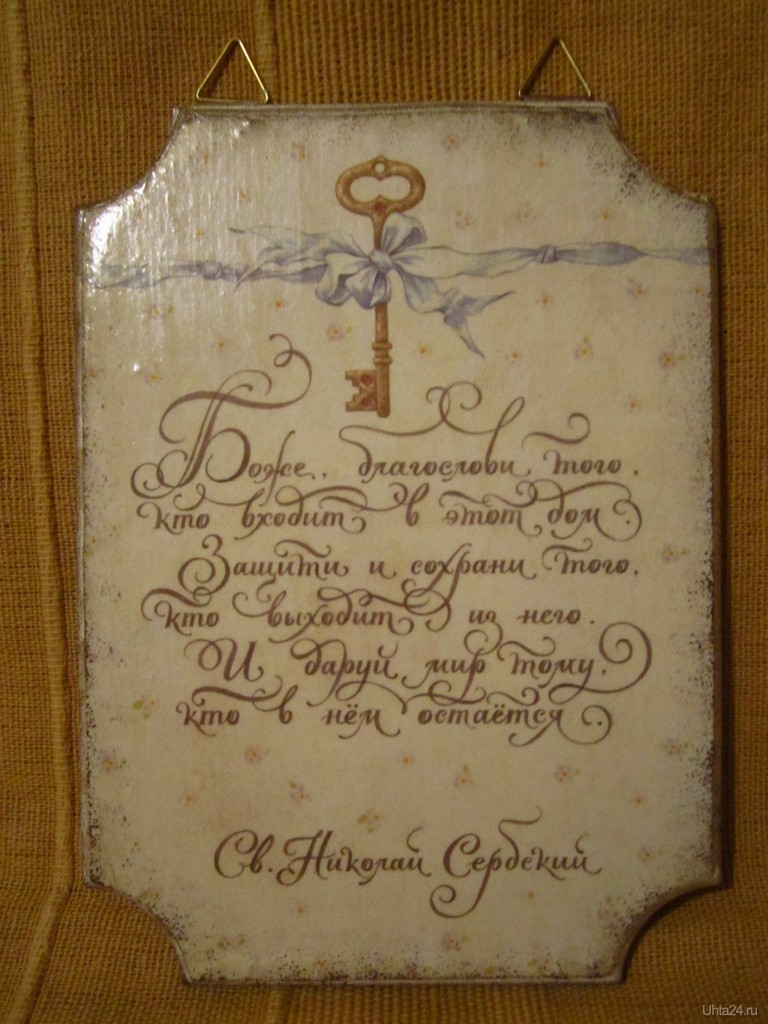 Боже, благослови того,
кто входит в этот дом.
Защити и сохрани того,
кто выходит из него.
И даруй мир тому,
кто в нём остаётся.
Св. Николай Сербский
Uhta24.ru